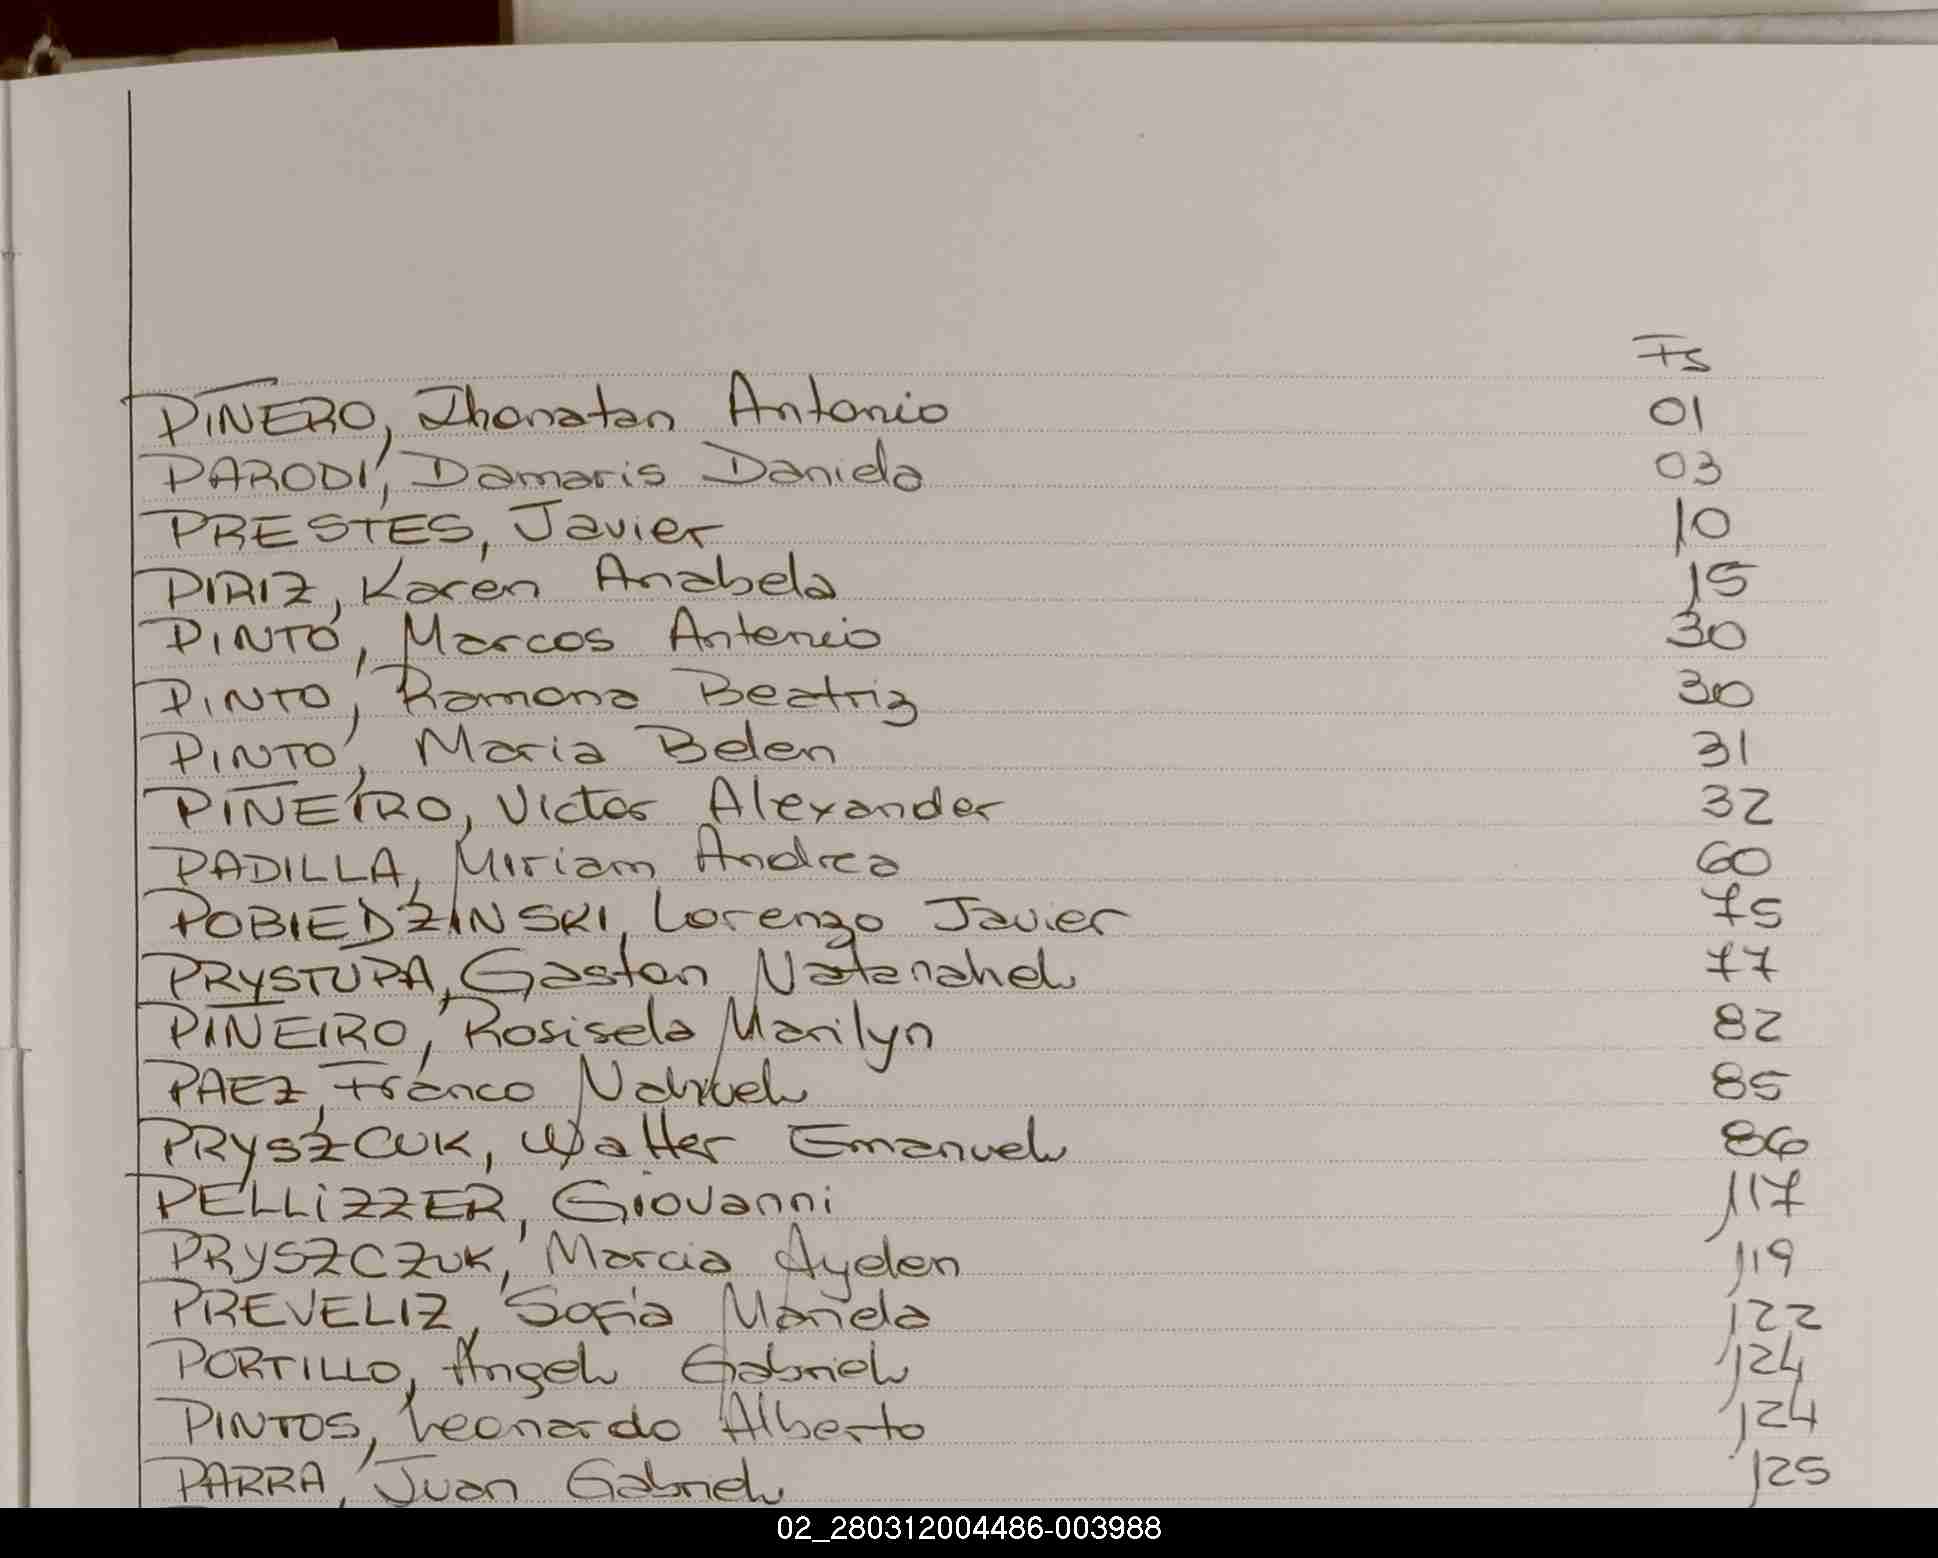 Fs
PIÑERO, Jhonatan Antonio 01
PARODI, Damaris Daniela 03
PRESTES, Javier 10
PIRIZ, Karen Anabela 15
PINTO, Marcos Antonio 30
PINTO, Ramona Beatriz 30
PINTO, Maria Belen 31
PIÑEIRO, Victor Alexander 32
PADILLA, Miriam Andrea 60
POBIEDZINSKI, Lorenzo Javier 75
PRYSTUPA, Gaston Natanahel 77
PIÑEIRO, Rosisela Marilyn 82
PAEZ, Franco Nahuel 85
PRYSZCUK, Walter Emanuel 86
PELLIZZER, Giovanni 117
PRYSZCZUK, Marcia Ayden 119
PREVELIZ, Sofia Mariela 122
PORTILLO, Angel Gabriel 124
PINTOS, Leonardo Alberto 124
PARRA, Juan Gabriel 125
02_280312004486-003988